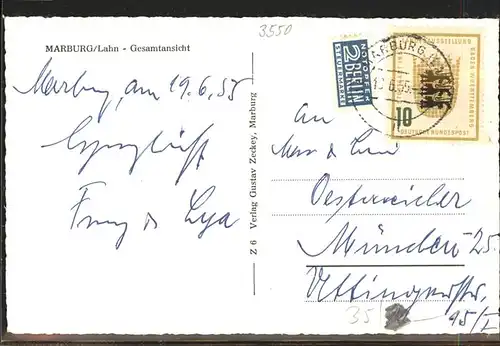 3550
MARBURG/Lahn - Gesamtansicht
Marburg, am 19.6.55
Franz & Lya
Z 6 Verlag Gustav Zeckey, Marburg
NOTOPFER
2 BERLIN
STEUERMARKE
MARBURG
.6.55
AUSSTELLUNG
BADEN-WÜRTTEMBERG
10
DEUTSCHE BUNDESPOST
An
Oesterreicher
München 25
95/I
35